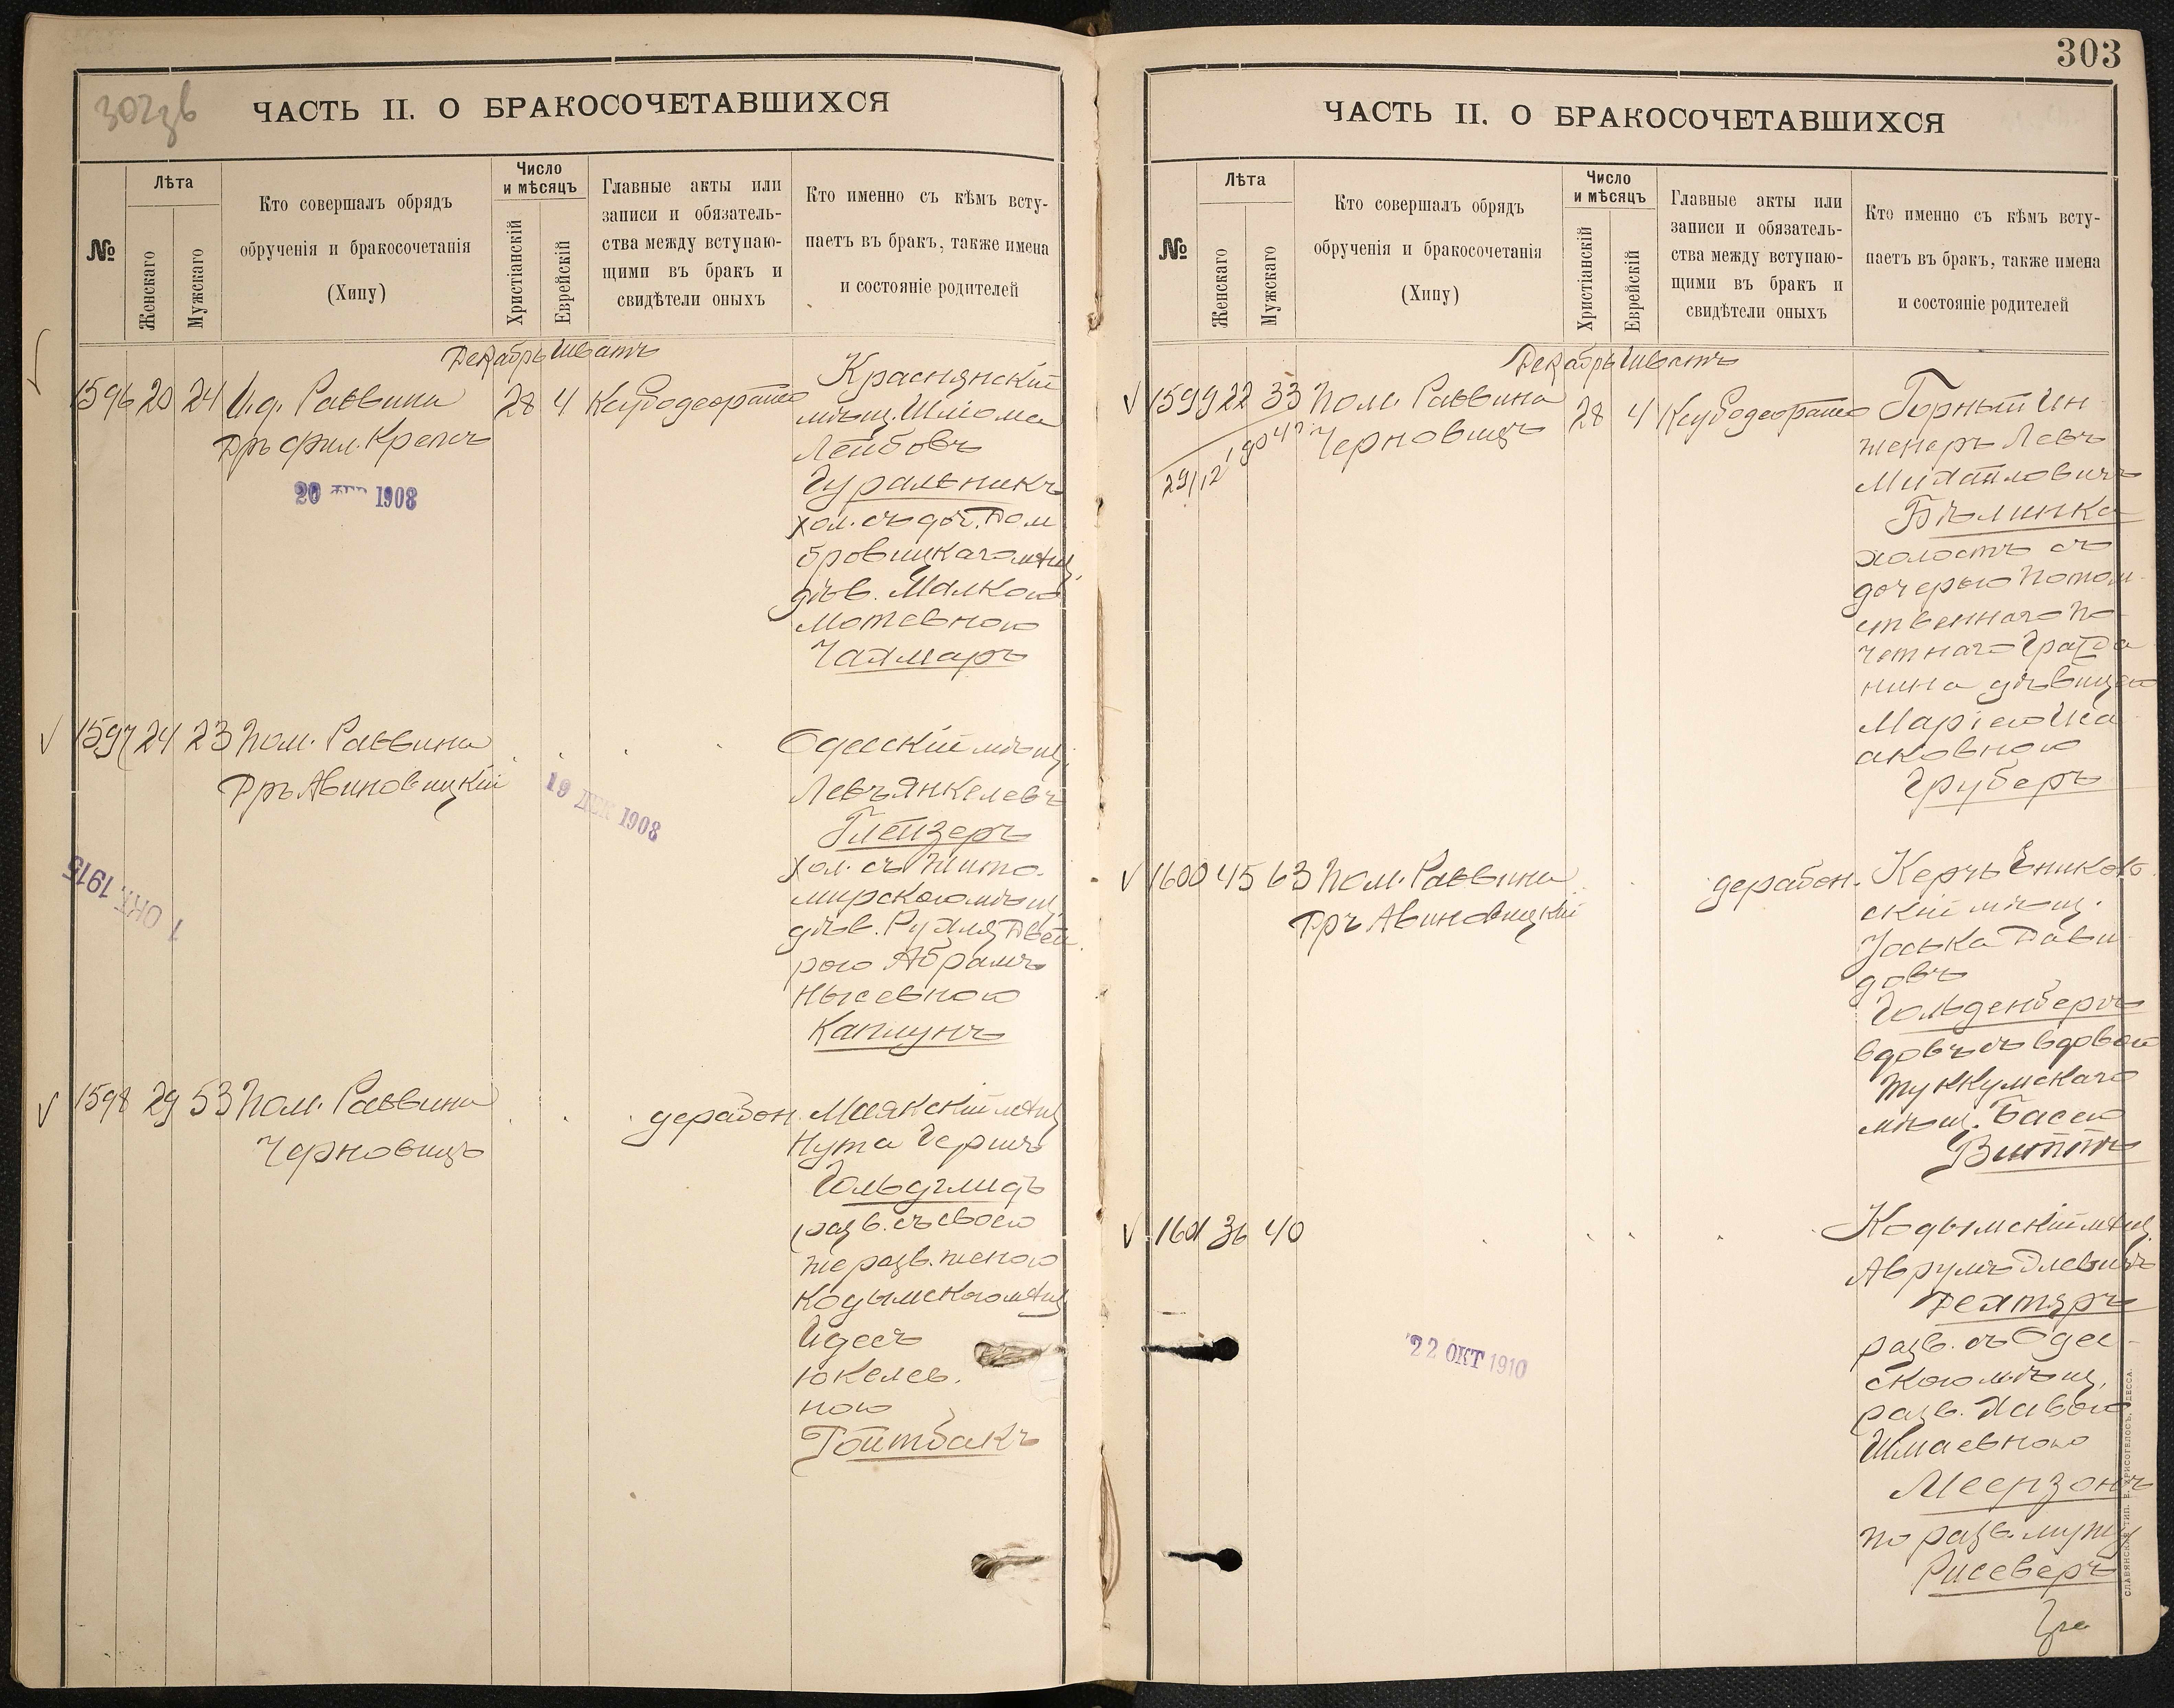 302зв
ЧАСТЬ II. О БРАКОСОЧЕТАВШИХСЯ
№
Лѣта
Женскаго
Мужскаго
Кто совершалъ обрядъ
обрученія и бракосочетанія
(Хипу)
Число
и мѣсяцъ
Христіанскій
Еврейскій
Главные акты или
записи и обязатель-
ства между вступаю-
щими въ бракъ и
свидѣтели оныхъ
Кто именно съ кѣмъ всту-
паетъ въ бракъ, также имена
и состояніе родителей
Декабрь Шватъ
1596 20 24 И.д. Раввина 28 4
Др. фил. Крепсъ
20 1908
Краснянскій
мѣщ. Шлома
Лейбовъ
Гуральникъ
хол. съ доч. Дом
бровицкаго мѣщ.
дѣв. Малкою
Мотевною
Чахмаръ
1597 24 23 Пом. Раввина
Дръ Авиновицкій
19 ДЕК 1908
1 ОКТ. 1915
Одесскій мѣщ.
Левъ Янкелевъ
Глейзеръ
хол. съ Жито-
мирскою мѣщ.
дѣв. Рухля Двей
рою Абрамъ
Нысевною
Каплунъ
1598 29 53 Пом. Раввина
Черновицъ
дерабон.
Маякскій мѣщ.
Нута Гершъ
Гольдшмидъ
разв. съ своею
же разв. женою
Кодымскою мѣщ.
Идесъ
Юкелев.
ною
Гойтбакъ
303
ЧАСТЬ II. О БРАКОСОЧЕТАВШИХСЯ
№
Лѣта
Женскаго
Мужскаго
Кто совершалъ обрядъ
обрученія и бракосочетанія
(Хипу)
Число
и мѣсяцъ
Христіанскій
Еврейскій
Главные акты или
записи и обязатель-
ства между вступаю-
щими въ бракъ и
свидѣтели оныхъ
Кто именно съ кѣмъ всту-
паетъ въ бракъ, также имена
и состояніе родителей
Декабрь Шватъ
1599 22 33 Пом. Раввина 28 4
Черновицъ
29/12
Горный Ин
женеръ Левъ
Михайловичъ
Бѣлинка
холостъ съ
дочерью Потом-
ственнаго По
четнаго Гражда
нина дѣвицею
Маріею Иса
аковною
Груберъ
1600 45 63 Пом. Раввина
Дръ Авиновицкій
дерабон.
Керчь Еников
скій мѣщ.
Іоська Дави
довъ
Гольденбергъ
вдовъ съ вдовою
Туккумскаго
мѣщ. Басею
Виттъ
1601 36 40
22 ОКТ 1910
Кодымскій мѣщ.
Аврумъ
Дехтяръ
разв. съ Одес-
скою мѣщ.
разв. Хавою
Шмаевною
Меерзонъ
по разв. мужу
Рисеверъ
СЛАВЯНСКАЯ ТИП. Е. ХРИСОГЕЛОСЪ, ОДЕССА.